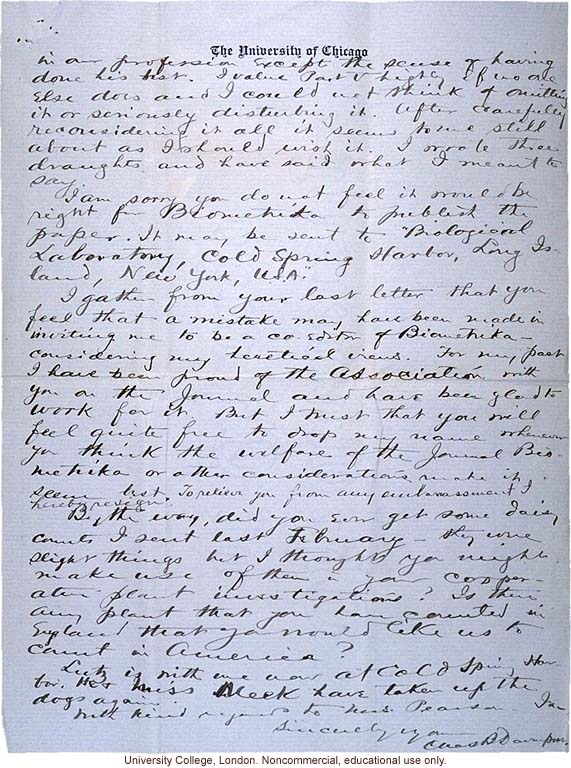 The University of Chicago
in our profession except the sense of having
done his best. I value Part V highly if no one
else does and I could not think of omitting
it or seriously disturbing it. After carefully
reconsidering it all it seems to me still
about as I should wish it. I wrote three
draughts and have said what I meant to
say.
I am sorry you do not feel it would be
right for Biometrika to publish the
paper. It may be sent to "Biological
Laboratory, Cold Spring Harbor, Long Is-
land, New York, U.S.A."
I gather from your last letter that you
feel that a mistake may have been made in
inviting me to be a co-editor of Biometrika -
considering my heretical views. For my part
I have been proud of the Association with
you on the Journal and have been glad to
work for it. But I trust that you will
feel quite free to drop my name whenever
you think the welfare of the Journal Bio-
metrika or other considerations make it
seem best. To relieve you from any embarrassment I
hereby resign.
By the way, did you ever get some daisy
counts I sent last February - they were
slight things but I thought you might
make use of them in your cooper-
ative plant investigations? Is there
any plant that you have counted in
England that you would like us to
count in America?
Lutz is with me now at Cold Spring Har-
bor. He & Miss Meek have taken up the
dogs again.
With kind regards to Mrs. Pearson I am
Sincerely yours
Chas B Davenport.
University College, London. Noncommercial, educational use only.